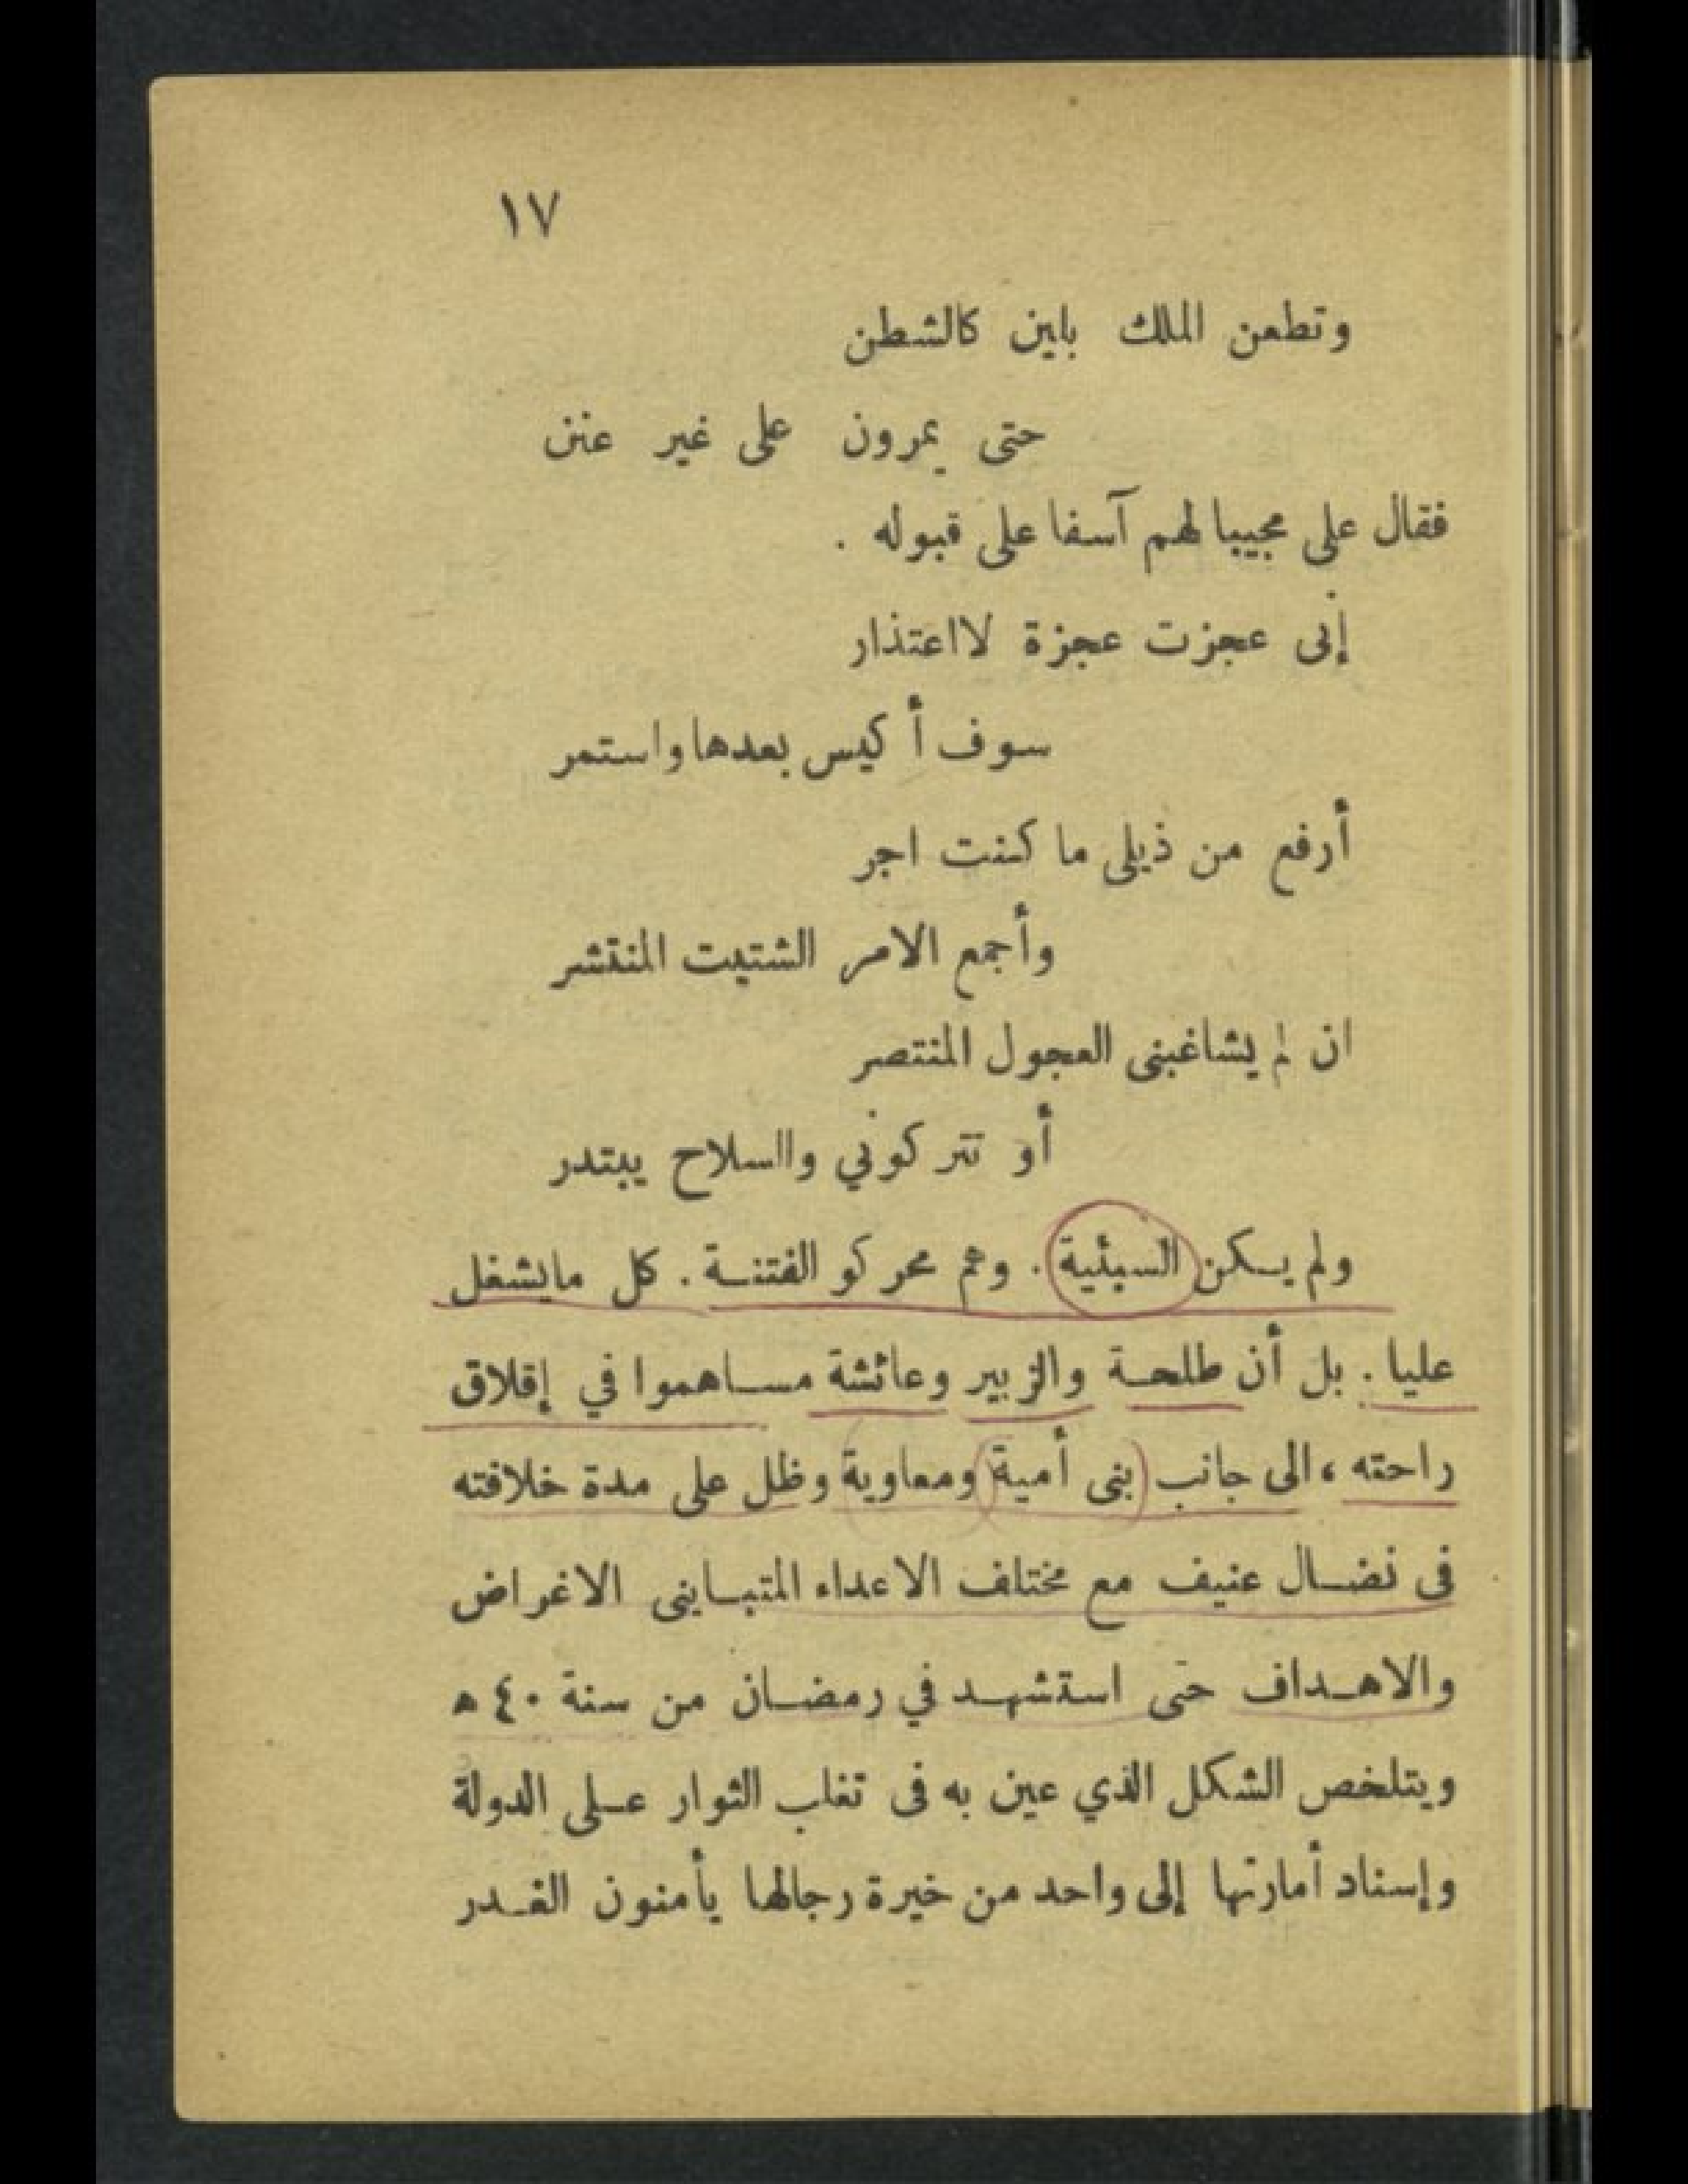 ١٧
وتطعن الملك بلين كالشطن
حتى يمرون على غير عنن
فقال على مجيبا لهم آسفا على قبوله .
إنى عجزت عجزة لااعتذار
سوف أكيس بعدها واستمر
أرفع من ذيلى ما كنت اجر
وأجمع الامر الشتيت المنتشر
ان لم يشاغبنى العجول المنتصر
أو تتركوني والسلاح يبتدر
ولم يكن السبئية . وهم محركو الفتنة . كل مايشغل
عليا . بل أن طلحة والزبير وعائشة مساهموا في إقلاق
راحته ، الى جانب بنى أمية ومعاوية وظل على مدة خلافته
فى نضال عنيف مع مختلف الاعداء المتباينى الاغراض
والاهداف حتى استشهد في رمضان من سنة ٤٠ ه
ويتلخص الشكل الذي عين به فى تغلب الثوار على الدولة
وإسناد أمارتها إلى واحد من خيرة رجالها يأمنون الغدر